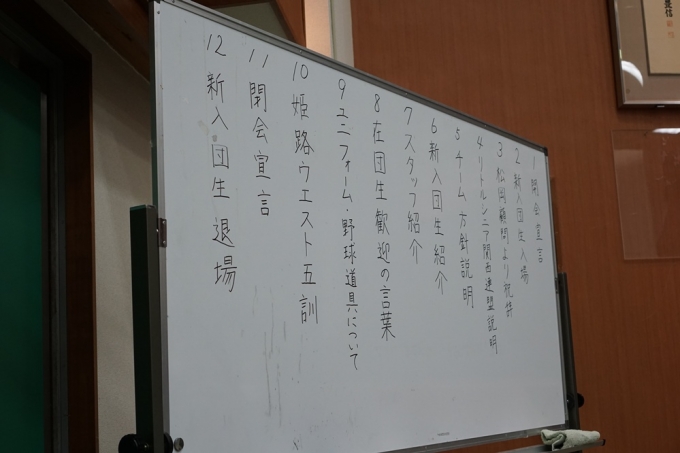 1 開会宣言
2 新入団生入場
3 松岡顧問より祝辞
4 リトルシニア関西連盟説明
5 チーム方針説明
6 新入団生紹介
7 スタッフ紹介
8 在団生歓迎の言葉
9 ユニフォーム・野球道具について
10 姫路ウエスト五訓
11 閉会宣言
12 新入団生退場